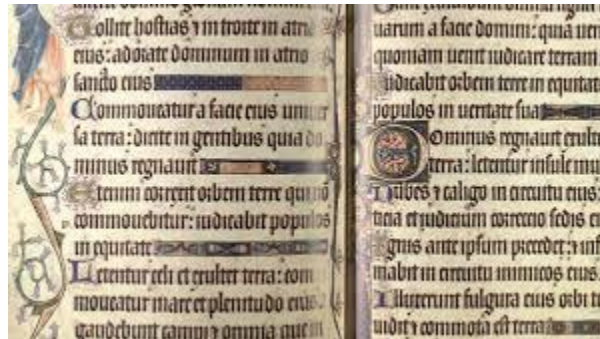 Tollite hostias ⁊ in troite in atri
eius: adorate dominum in atrio
sancto eius
Commoueatur a facie eius uniuer
sa terra: dicite in gentibus quia do
minus regnauit
Etenim correxit orbem terre qui nō
commouebitur: iudicabit populos
in equitate
Letentur celi et exultet terra: com
moueatur mare et plenitudo eius:
gaudebunt campi ⁊ omnia que in
uarum a facie domini: quia uen
quoniam uenit iudicare terram
Iudicabit orbem terre in equitate
populos in ueritate sua
Dominus regnauit exulte
terra: letentur insule mu
Nubes ⁊ caligo in circuitu eius:
ticia et iudicium correccio sedis ei
Ignis ante ipsum precedet: ⁊ inf
mabit in circuitu inimicos eius.
Illuxerunt fulgura eius orbi te
uidit ⁊ commota est terra